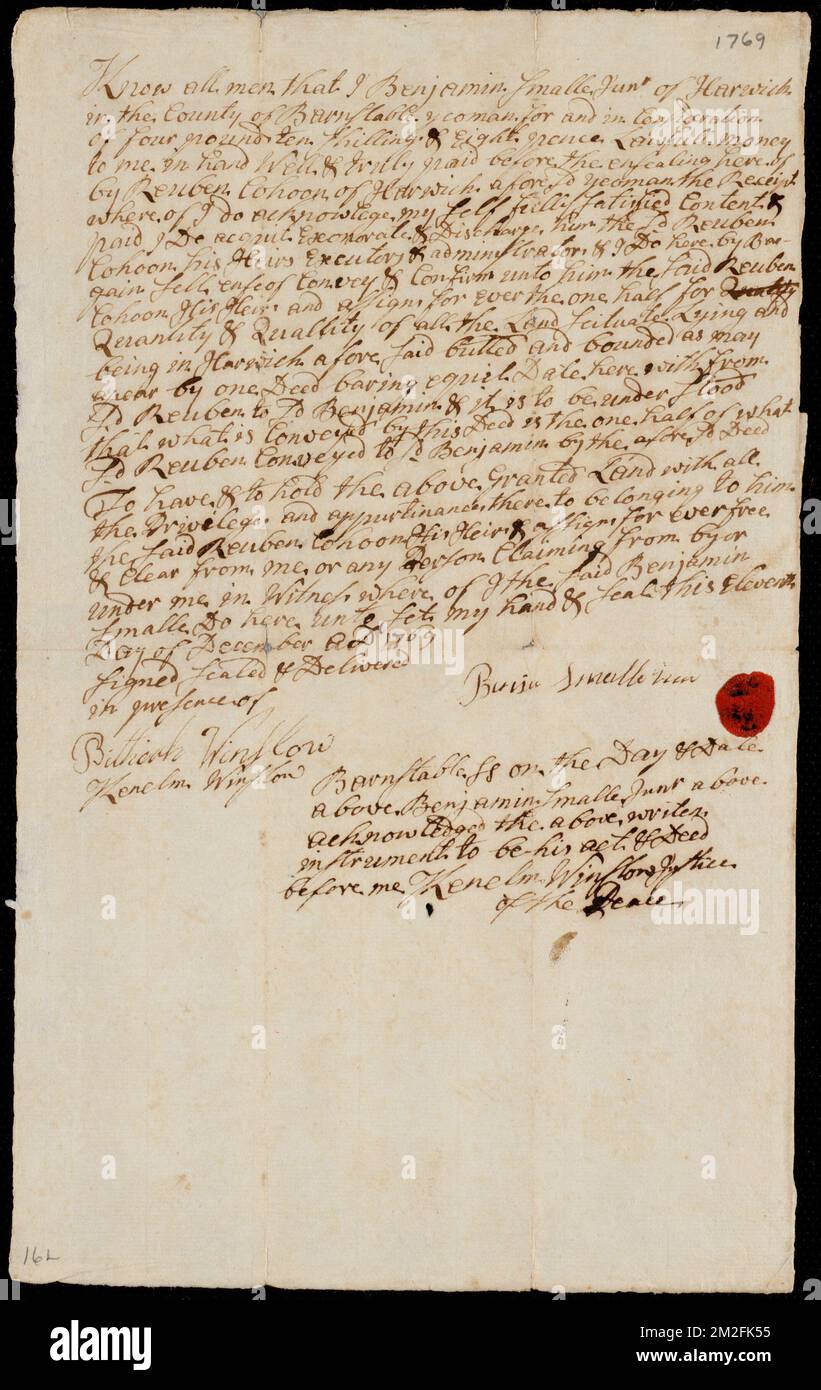 1769
Know all men that I Benjamin Smalle Junr of Harwich
in the County of Barnstable yeoman for and in Consideration
of four pound ten shilling & Eight pence Lawfull money
to me in hand Well & truly paid before the ensealing here of
by Reuben Cohoon of Harwich afore sd yeoman the Receipt
where of I do acknowlege my self fully Satisfied Content &
paid I Do acquit Exonorate & Discharge him the Sd Reuben
Cohoon his Heirs Executors & adminstrators & I Do here by Bar-
gain sell enfeof Convey & Confirm unto him the said Reuben
Cohoon His Heirs and assigns for ever the one half for Quality
Quantity & Quallity of all the Land scituate Lying and
being in Harwich afore said butted and bounded as may
apear by one Deed baring equil Date here with from
Sd Reuben to Sd Benjamin & it is to be under stood
that what is Conveyed by this Deed is the one half of what
Sd Reuben Conveyed to sd Benjamin by the afore sd Deed
To have & to hold the above Granted Land with all
the Privileges and appurtinances there to belonging to him
the said Reuben Cohoon His Heirs & assigns for ever free
& Clear from me or any Person Claiming from by or
under me in Witness where of I the said Benjamin
Smalle Do here unto set my hand & seal this Eleventh
Day of December AD 1769
signed sealed & Delivered
in presence of
Benja Smalle iun
Winslow
Kenelm Winslow
Barnstable ss on the Day & Date
above Benjamin Smalle Junr above
acknowledged the above writen
instrument to be his act & Deed
before me Kenelm Winslow Justice
of the Peace
16L
alamy
Image ID: 2M2FK55
www.alamy.com